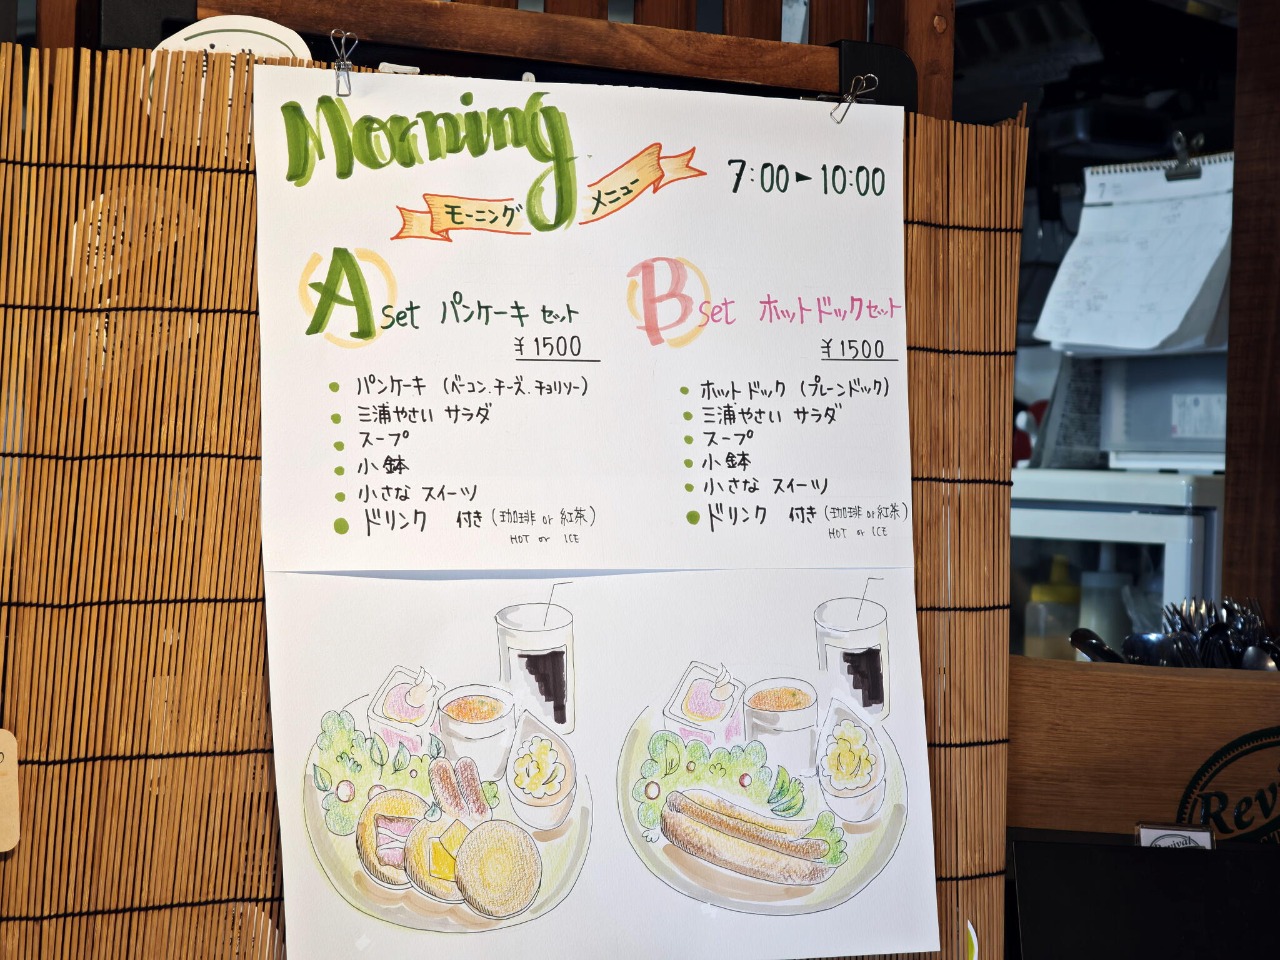 Morning
モーニング メニュー
7:00►10:00
A set パンケーキ セット
¥1500
• パンケーキ (ベーコン.チーズ.チョリソー)
• 三浦やさい サラダ
• スープ
• 小鉢
• 小さな スイーツ
• ドリンク 付き (珈琲 or 紅茶)
HOT or ICE
B set ホットドックセット
¥1500
• ホットドック (プレーンドック)
• 三浦やさい サラダ
• スープ
• 小鉢
• 小さな スイーツ
• ドリンク 付き (珈琲 or 紅茶)
HOT or ICE
7
Revival